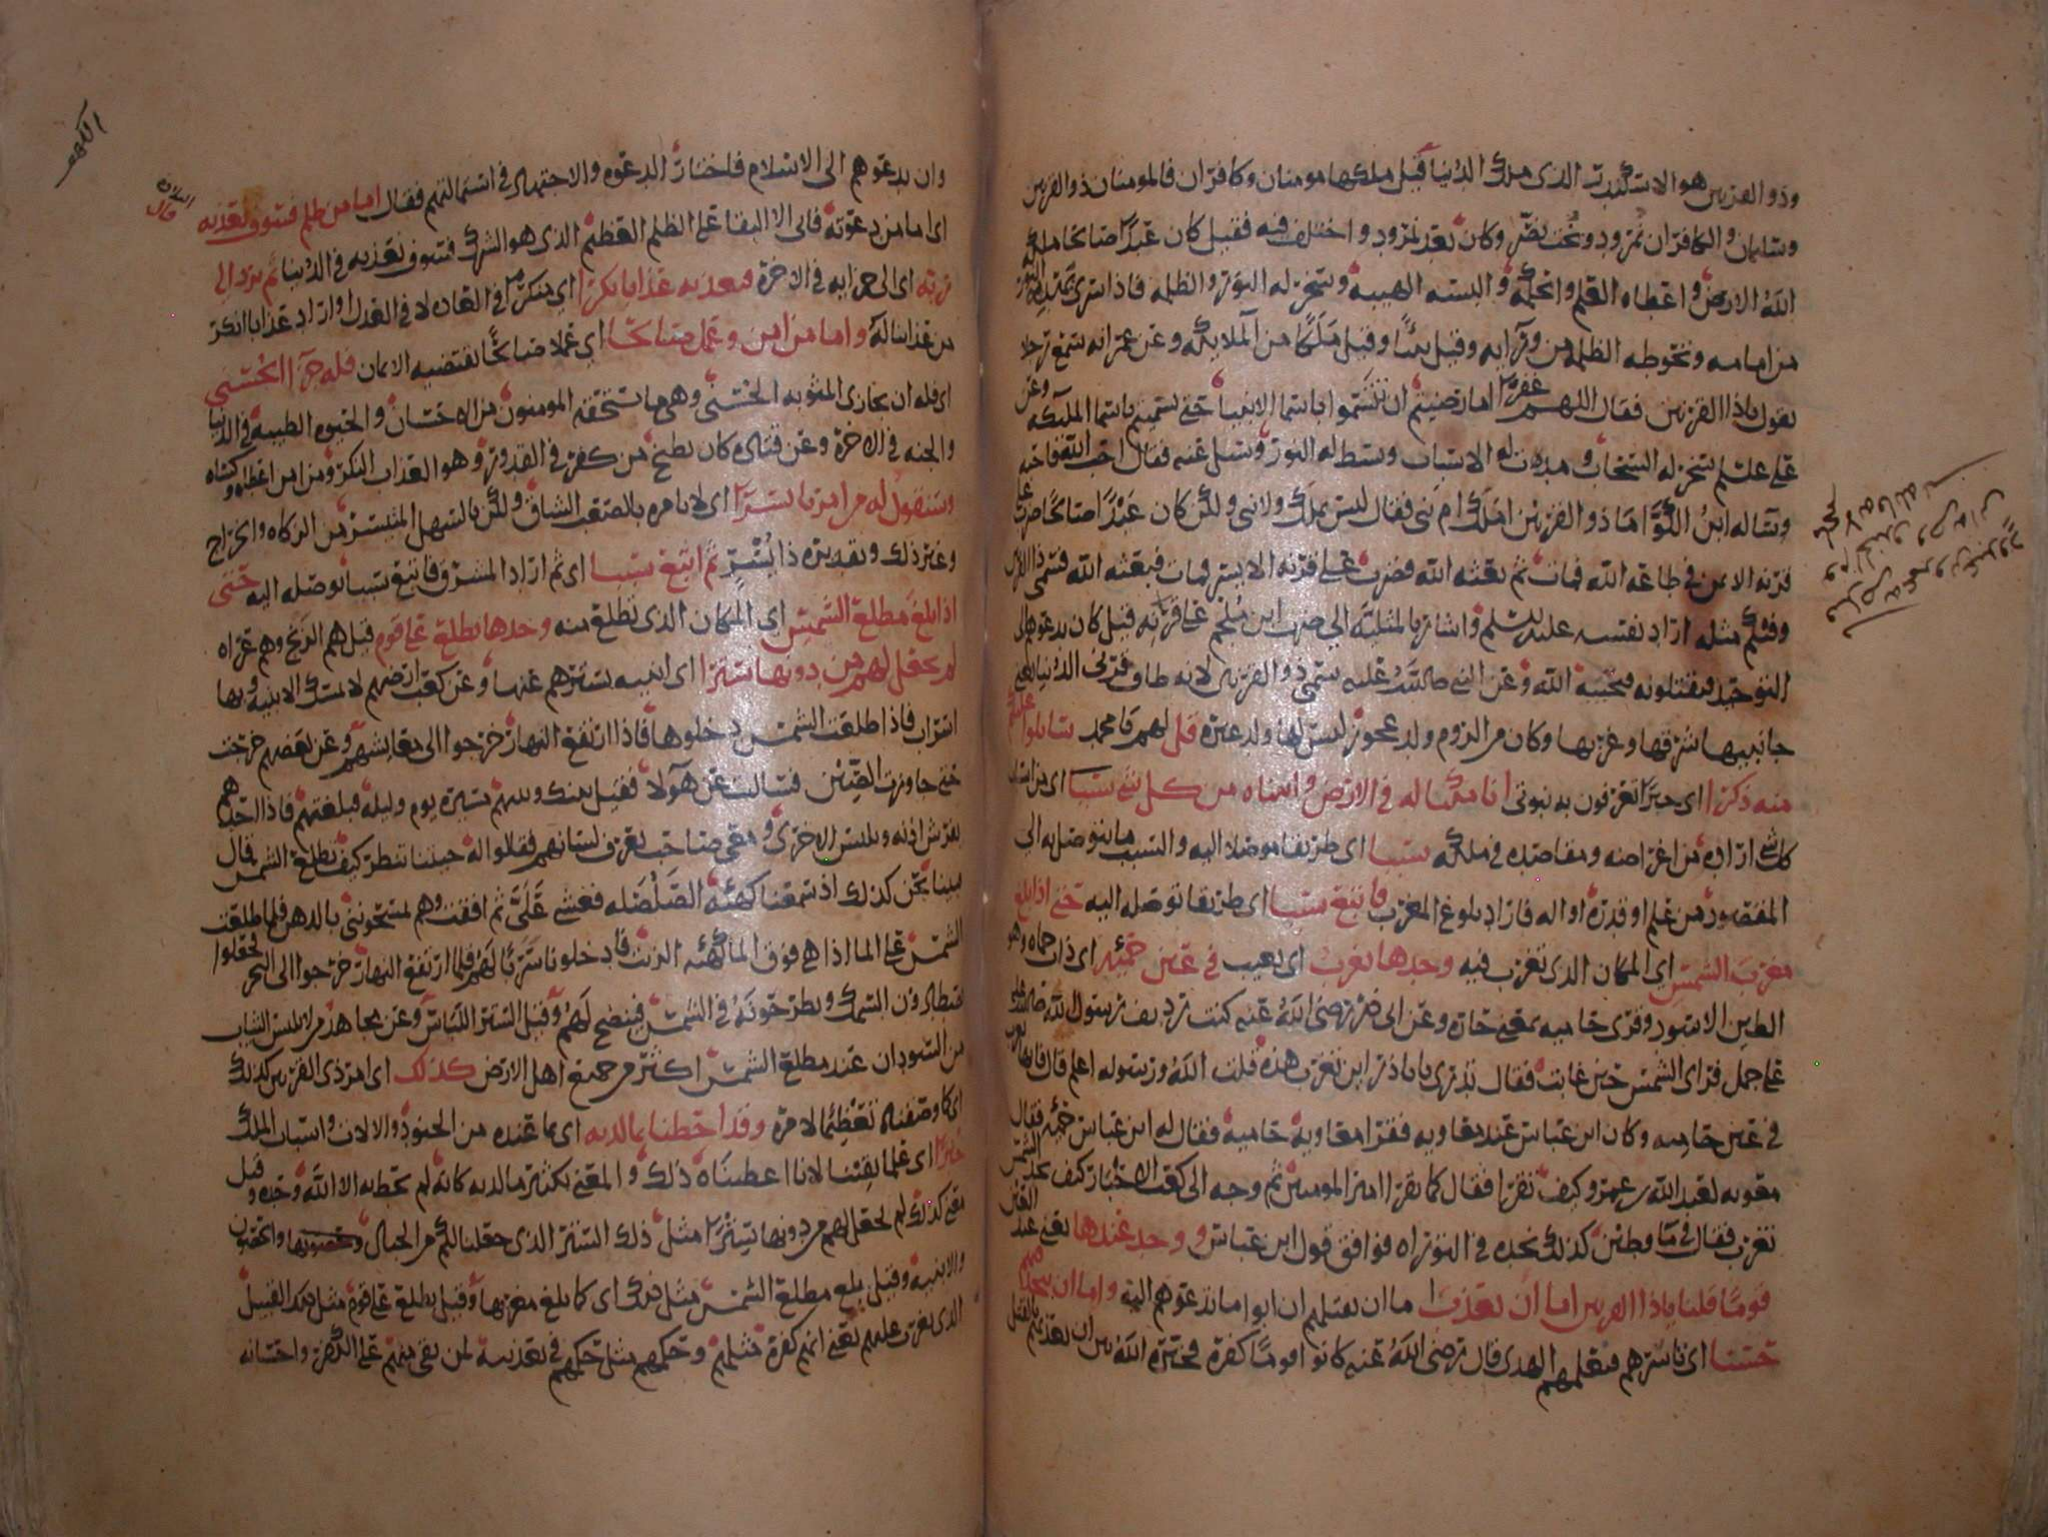 وذو القرنين هو الاسكندر الذى ملك الدنيا قيل ملكها مومنان وكافران فالمومنان ذو القرنين
وسليمان والكافران نمرود وبخت نصر وكان بعد نمرود واختلف فيه فقيل كان عبدًا صالحا ملكه
الله الارض واعطاه العلم والحكمة والبسه الهيبة وسخر له النور والظلمه فاذا سرى يهديه النور
من امامه وتحوطه الظلمه من ورآيه وقيل نبيًا وقيل ملَكًا من الملايكه وعن عمر انه سمع رجلا
يقول ياذا القرنين فقال اللهم غفرًا اما رضيتم ان تتسموا باسما الانبيا حتى تسميتم باسما الملئكه وعن
على علسلم سخر له السحاب ومدت له الاسباب وبسط له النور وسئل عنه فقال احب الله فاحبه
وساله ابن الكوَّا ما ذو القرنين املك ام نبى فقال ليس بملك ولا نبى ولكن كان عبدًا صالحًا ضرب على
قرنه الايمن فى طاعه الله فمات ثم بعثه الله فضرب على قرنه الايسر فمات فبعثه الله فسمى ذا القرنين
وفيكم مثله اراد نفسه عليه السلم واشار بالمثلية الى ضربت ابن ملجم على قرنه قيل كان يدعوهم الى
التوحيد فيقتلونه فيحييه الله وعن النبى صلى الله عليه سمى ذو القرنين لانه طاف قرنى الدنيا يعنى
جانبيها شرقها وغربها وكان من الروم ولد عجوز ليس لها ولد غيره قل لهم يا محمد ساتلوا عليكم
منه ذكرا اى خبرًا تعرفون به نبوتى انا مكنا له فى الارض واتيناه من كل شى سببا اى من اسباب
كل شى اراده من اغراضه ومقاصده فى ملكه سببا اى طريقا موصلا اليه والسبب ما يتوصل به الى
المقصود من علم او قدرة او اله فاراد بلوغ المغرب فاتبع سببا اى طريقا توصله اليه حتى اذا بلغ
مغرب الشمس اى المكان الذى تغرب فيه وجدها تغرب اى تغيب فى عين حمئه اى ذات حماه وهو
الطين الاسود وقرى حاميه بمعنى حارة وعن ابى ذر رضى الله عنه كنت رديف رسول الله صلى الله عليه
على جمل فراى الشمس حين غابت فقال تدرى يا باذر اين تغرب هذه قلت الله ورسوله اعلم قال فانها تغرب
فى عين حاميه وكان ابن عباس عند معاويه فقرا معاوية حامية فقال له ابن عباس حمئه فقال
معويه لعبد الله بن عمرو كيف تقرا فقال كما يقرا امير المومنين ثم وجه الى كعب الاحبار كيف تجد الشمس
تغرب فقال فى ما وطين كذلك نجده فى التوراه فوافق قول ابن عباس ووجد عندها يعنى عند العين
قومًا قلنا ياذا القرنين اما ان تعذب اما ان تقتلهم ان ابوا ما تدعوهم اليه واما ان تتخذ فيهم
حسنا اى تاسرهم فتعلمهم الهدى قال رضى الله عنه كانوا قومًا كفرة فخيره الله بين ان يعذبهم بالقتل
الكهف
وان يدعوهم الى الاسلام فاختار الدعوه والاجتهاد فى استمالتهم فقال اما من ظلم فسوف نعذبه
اى اما من دعوته فابى الا البقا على الظلم العظيم الذى هو الشرك فسوف نعذبه فى الدنيا ثم يرد الى
ربه اى الى جزايه فى الاخرة فيعذبه عذابا نكرا اى منكرًا فى العاده لا فى العدل او اراد عذابا انكر
من عذابنا له واما من امن وعمل صالحا اى عملا صالحًا يقتضيه الايمان فله جزآ الحسنى
اى فله ان يجازى المثوبه الحسنى وهى ما يستحقه المومنون من الاحسان والحيوه الطيبه فى الدنيا
والجنه فى الاخرة وعن قتاده كان يطبخ من كفر فى القدور وهو العذاب النكر ومن امن اعطاه وكساه
وسنقول له من امرنا يسرًا اى لا نامره بالصعب الشاق ولكن بالسهل المتيسر من الزكاه والخراج
وغير ذلك وتقديره ذا يسر ثم اتبع سببا اى ثم اراد المشرق فاتبع سببا توصله اليه حتى
اذا بلغ مطلع الشمس اى المكان الذى تطلع منه وجدها تطلع على قوم قيل هم الزنج وهم عراه
لم نجعل لهم من دونها سترا اى ابنيه تسترهم عنها وعن كعب ارضهم لا تمسك الابنيه وبها
اسراب فاذا طلعت الشمس دخلوها فاذا ارتفع النهار خرجوا الى معايشهم وعن بعضهم خرجت
حتى جاوزت الصين فسالت عن هولا فقيل بينك وبينهم مسيرة يوم وليله فبلغتهم فاذا احدهم
يفرش اذنه ويلبس الاخرى ومعى صاحب يعرف لسانهم فقالوا له جيتنا تنظر كيف تطلع الشمس قال
فبينا نحن كذلك اذ سمعنا كهئه الصلصله فغشى علىَّ ثم افقت وهم يمسحوننى بالدهن فلما طلعت
الشمس على الما اذا هى فوق الما كهئه الزيت فادخلونا سربًا لهم فلما ارتفع النهار خرجوا الى البحر فجعلوا
يصطادون السمك ويطرحونه فى الشمس فينضج لهم وقيل الستر اللباس وعن مجاهد من لا يلبس الثياب
من السودان عند مطلع الشمس اكثر من جميع اهل الارض كذلك اى امر ذى القرنين كذلك
اى كما وصفناه تعظيمًا لامره وقد احطنا بما لديه اى بما عنده من الجنود والالات واسباب الملك
خبرًا اى علما يقينا لانا اعطيناه ذلك والمعنى بكثرة ما لديه كانه لم يحط به الا الله وحده وقيل
معنى كذلك لم نجعل لهم من دونها سترًا مثل ذلك الستر الذى جعلنا لكم من الجبال والحصون
والابنيه وقيل بلغ مطلع الشمس مثل ذلك اى كما بلغ مغربها وقيل تطلع على قوم مثل ذلك القبيل
الذى تغرب عليهم يعنى انهم كفرة مثلهم وحكمهم مثل حكمهم فى تعذيبه لمن بقى منهم على الكفر واحسانه